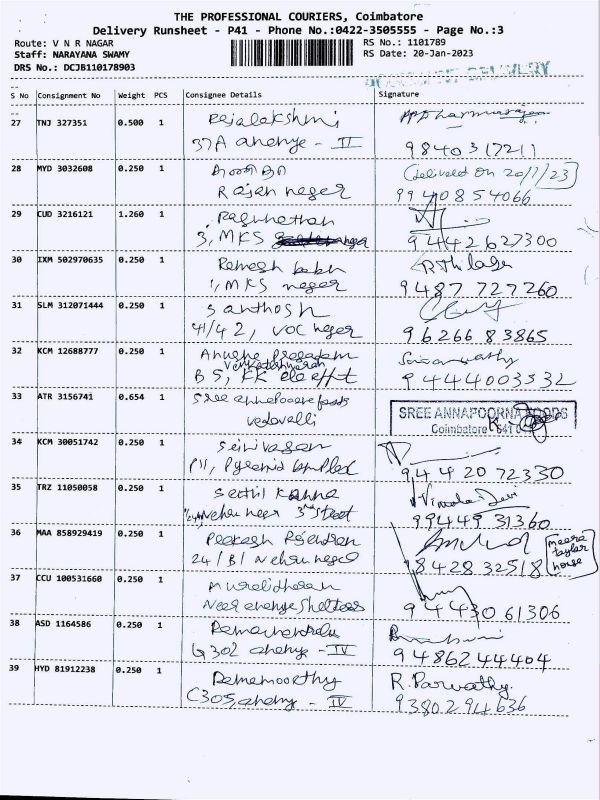 THE PROFESSIONAL COURIERS, Coimbatore
Delivery Runsheet - P41 - Phone No.:0422-3505555 - Page No.:3
Route: V N R NAGAR
RS No.: 1101789
Staff: NARAYANA SWAMY
RS Date: 20-Jan-2023
DRS No.: DCJB110178903
DELIVERY
S No Consignment No Weight PCS Consignee Details Signature
27 TNJ 327351 0.500 1 Rajalakshmi
37A - II 9840317211
28 MYD 3032608 0.250 1 (delivered on 20/1/23)
Rajan neger 9940854066
29 CUD 3216121 1.260 1 Ragunethan
3, MKS 9442627300
30 IXM 502970635 0.250 1 Remesh babu
1, MKS neger 9487727260
31 SLM 312071444 0.250 1 Santhosh
41/42, VOC neger 9626683865
32 KCM 12688777 0.250 1
B5, KK 9444003532
33 ATR 3156741 0.654 1 Sree annapoorna foods SREE ANNAPOORNA FOODS
vedavalli Coimbatore 641
34 KCM 30051742 0.250 1 Seinivasan
P11, Pyramid 9442072330
35 TRZ 11050058 0.250 1 Senthil Kanna Vimala Devi
3rd Street 9944931360
36 MAA 858929419 0.250 1 Peekash Rajendran
24/B1 Nehru neger 9842832518 meera taylor house
37 CCU 100531660 0.250 1 Muralidharan
Near Shelters 9443061306
38 ASD 1164586 0.250 1
G302 - IV 9486244404
39 HYD 81912238 0.250 1 Remamoorthy R. Parvathy.
C305, - IV 9380294636